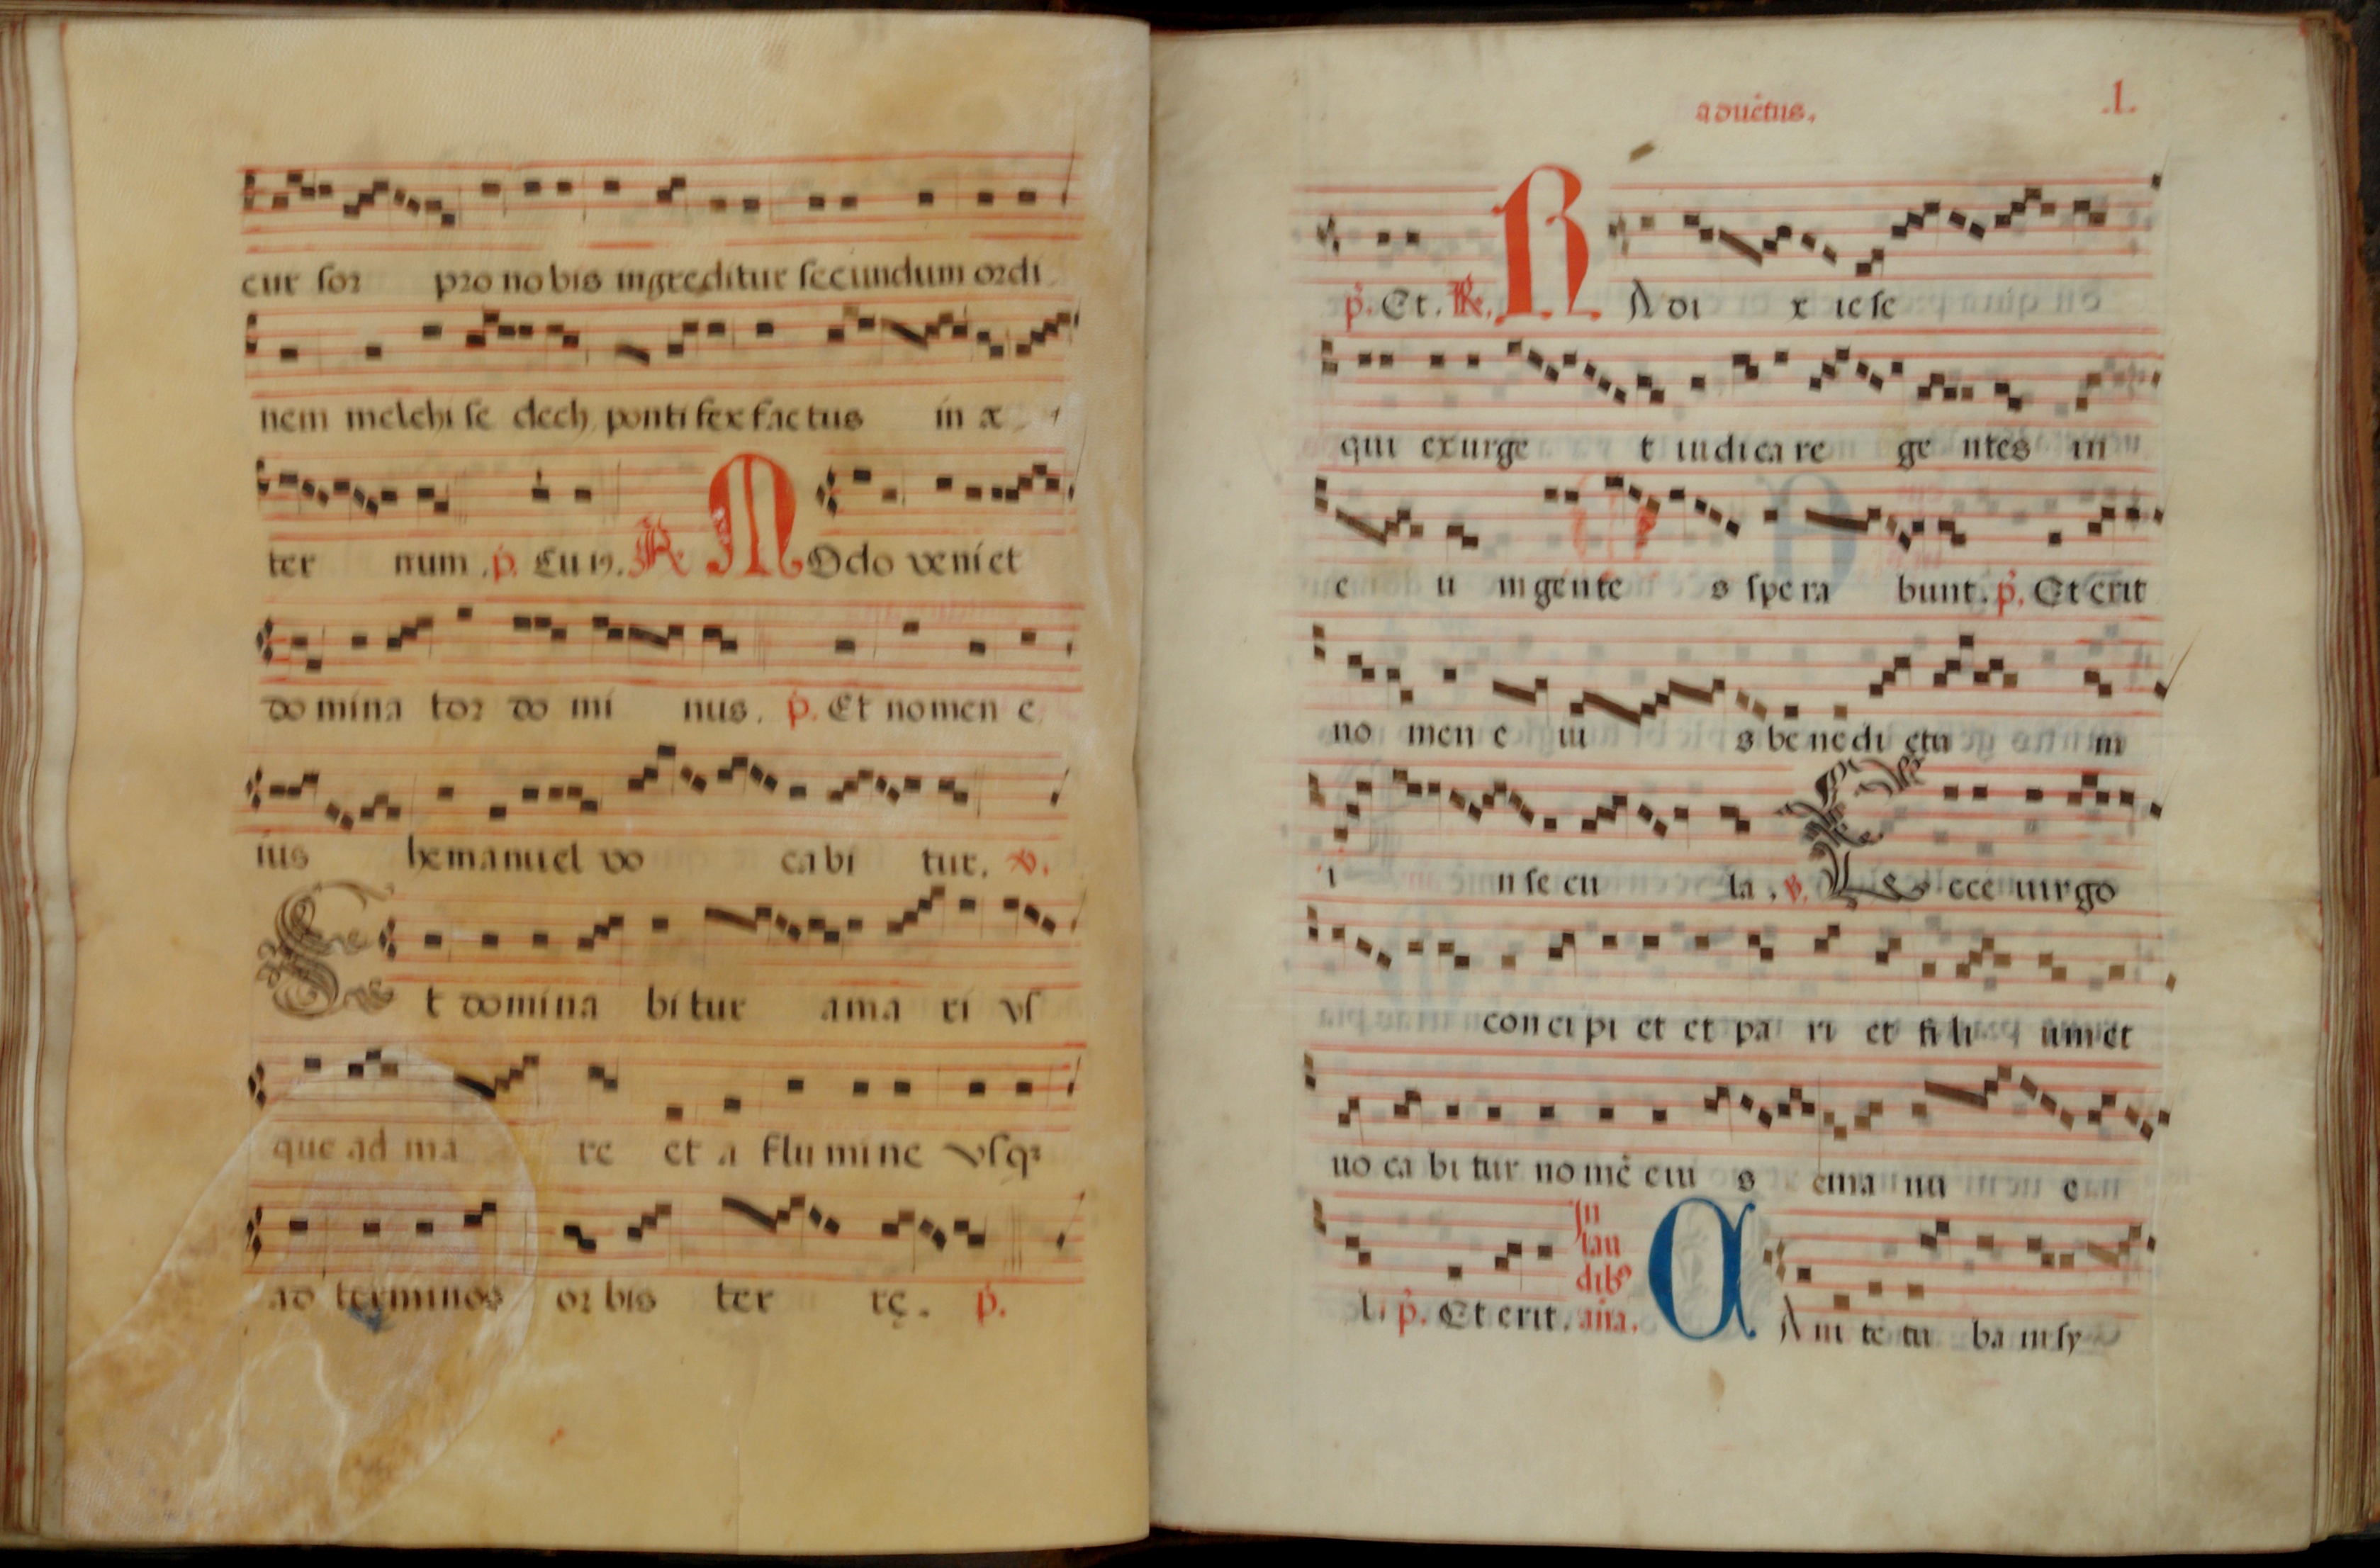 cur sor pro nobis ingreditur secundum ordi
nem melchi se dech ponti fex factus in æ
ter num. p. Cuiꝰ. R. M Odo veniet
do mina tor do mi nus. p. Et nomen e
ius hemanuel vo cabi tur. v.
E t domina bi tur a ma ri vs
que ad ma re et a flu mi ne vsqꝫ
ad terminos or bis ter rę. p.
aduētus. .l.
p. Et. R. R Adi x ie se
qui exurge t iudica re ge ntes in
e u m gente s spe ra bunt. p. Et erit
no men e iu s be ne di ctu m
i n se cu la. v. E ecce uirgo
con ci pi et et pa ri et fi li um et
uo ca bi tur no mē eiu s ema nu e
l. p. Et erit. In lau dibꝰ aña. C Ani te tu ba in sy